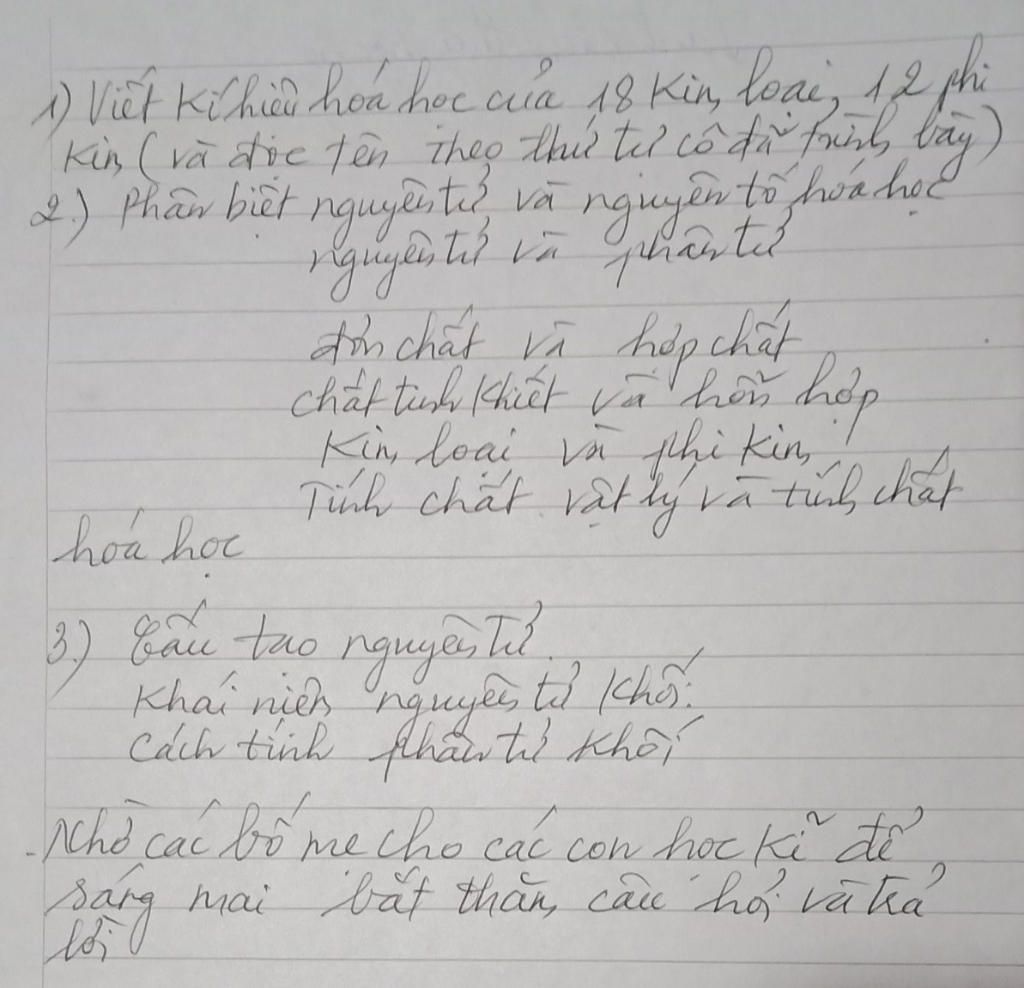 1) Viết kí hiệu hoá học của 18 Kim loại, 12 phi
Kim (và đọc tên theo thứ tự cô đã trình bày)
2.) Phân biệt nguyên tử và nguyên tố hóa học
nguyên tử và phân tử
đơn chất và hợp chất
chất tinh khiết và hỗn hợp
Kim loại và phi kim
Tính chất vật lý và tính chất
hóa học
3.) Cấu tạo nguyên tử.
Khái niệm nguyên tử khối.
Cách tính phân tử khối
- Nhờ các bố mẹ cho các con học kĩ để
sáng mai bắt thăm câu hỏi và trả
lời